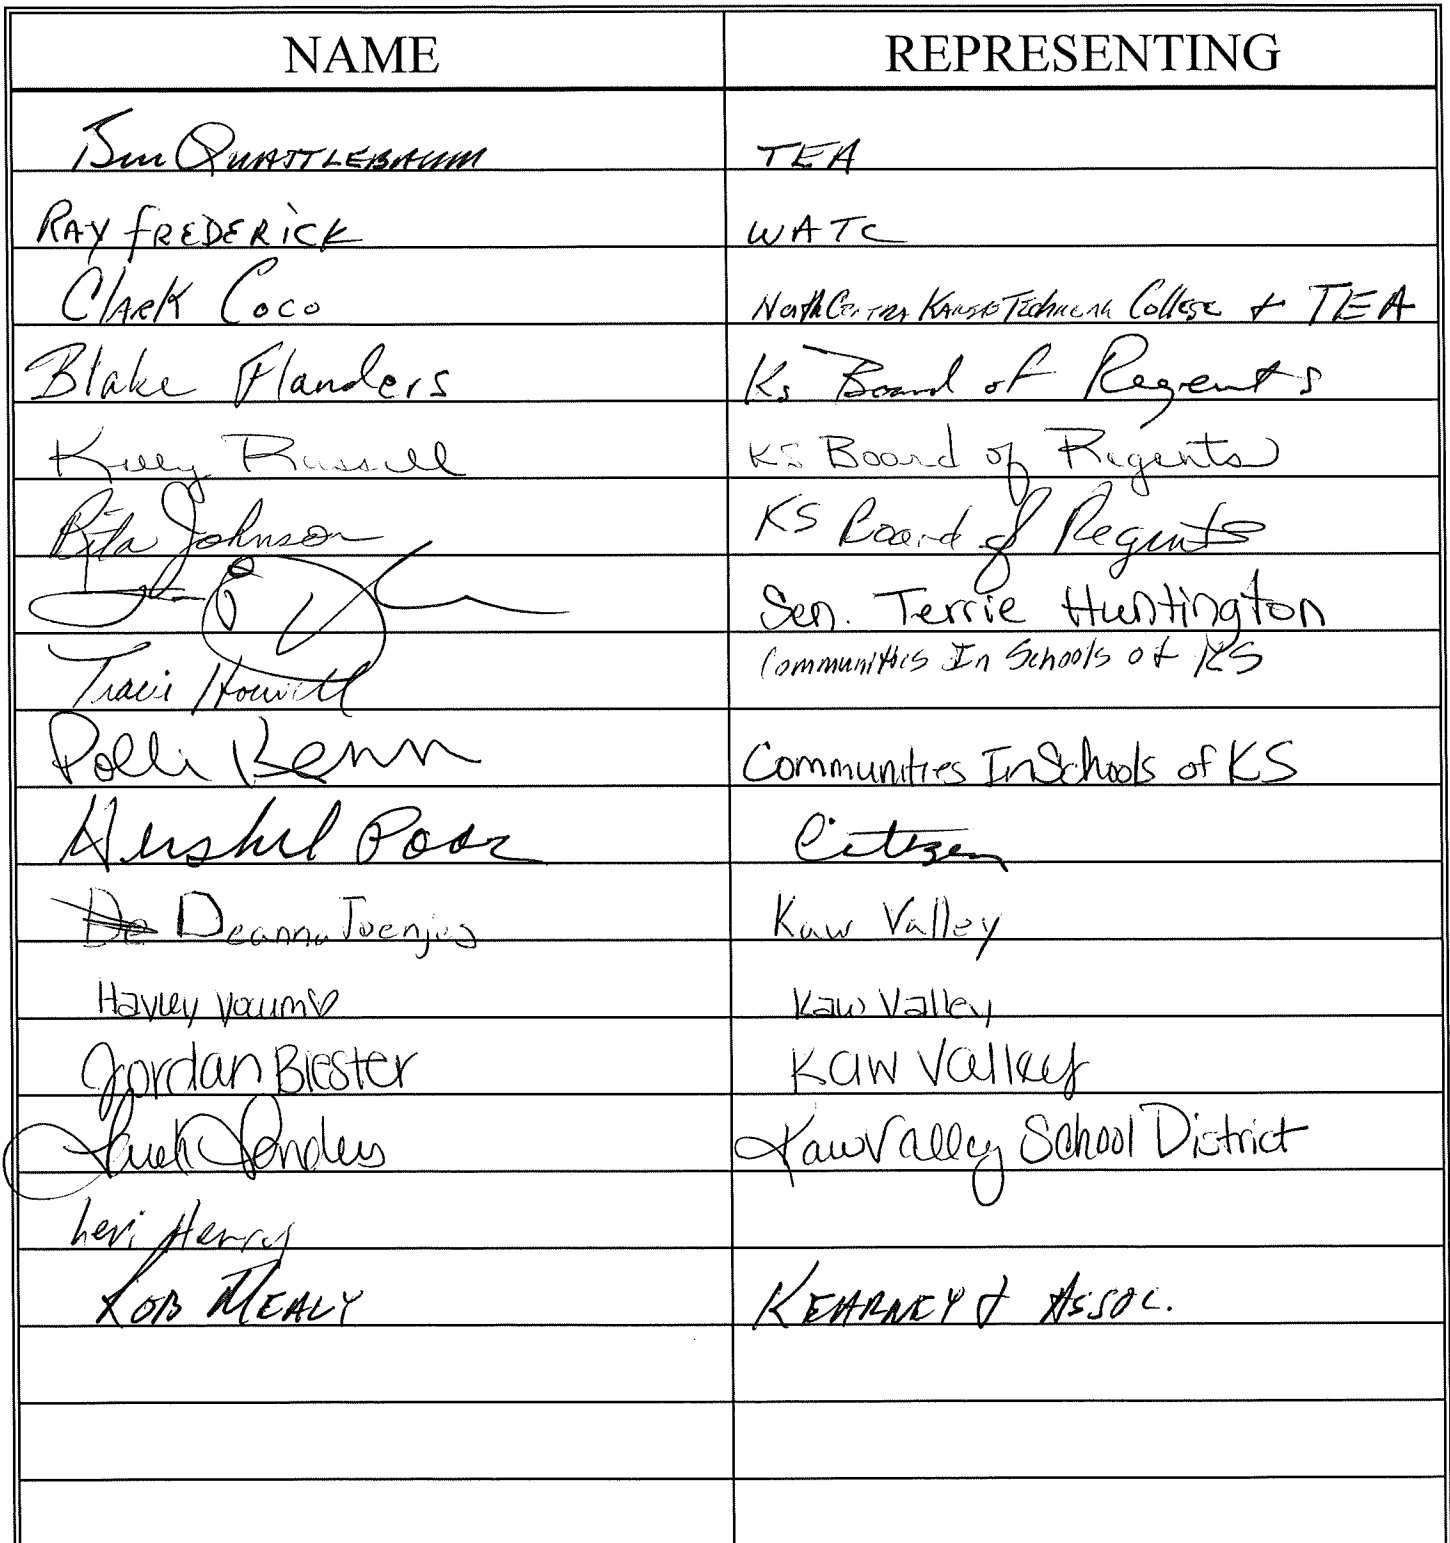 NAME REPRESENTING
QUATTLEBAUM TEA
RAY FREDERICK WATC
Clark Coco North Central Kansas Technical College & TEA
Blake Flanders Ks Board of Regents
Russell KS Board of Regents
Rita Johnson KS Board of Regents
Sen. Terrie Huntington
Communities In Schools of KS
Traci Howell
Polli Kenn Communities In Schools of KS
Hershel Citizen
De Deanna Toenjes Kaw Valley
Kaw Valley
Jordan Biester Kaw Valley
Kaw Valley School District
Levi Henry
ROB MEALY KEARNEY & ASSOC.